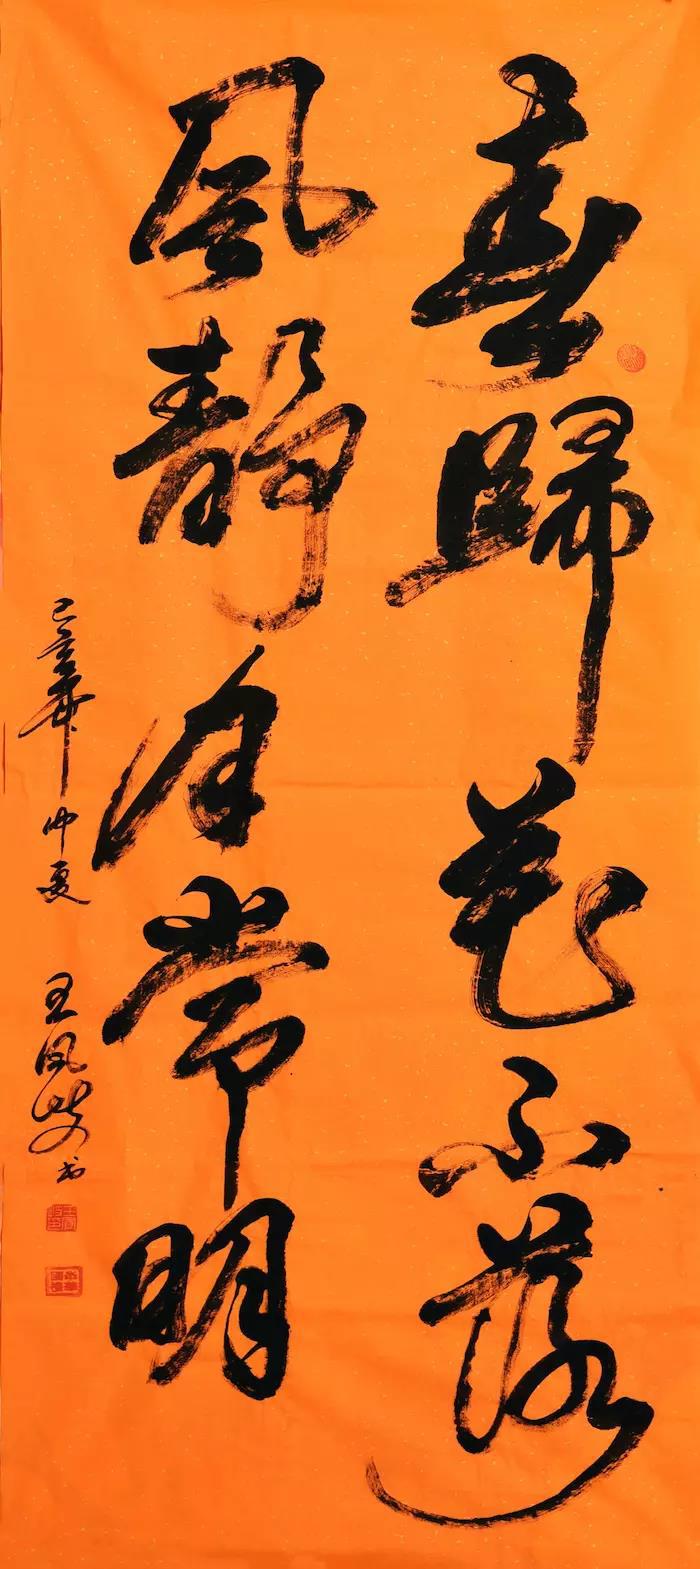 春歸花不落
風靜月常明
己亥年仲夏
王凤 书